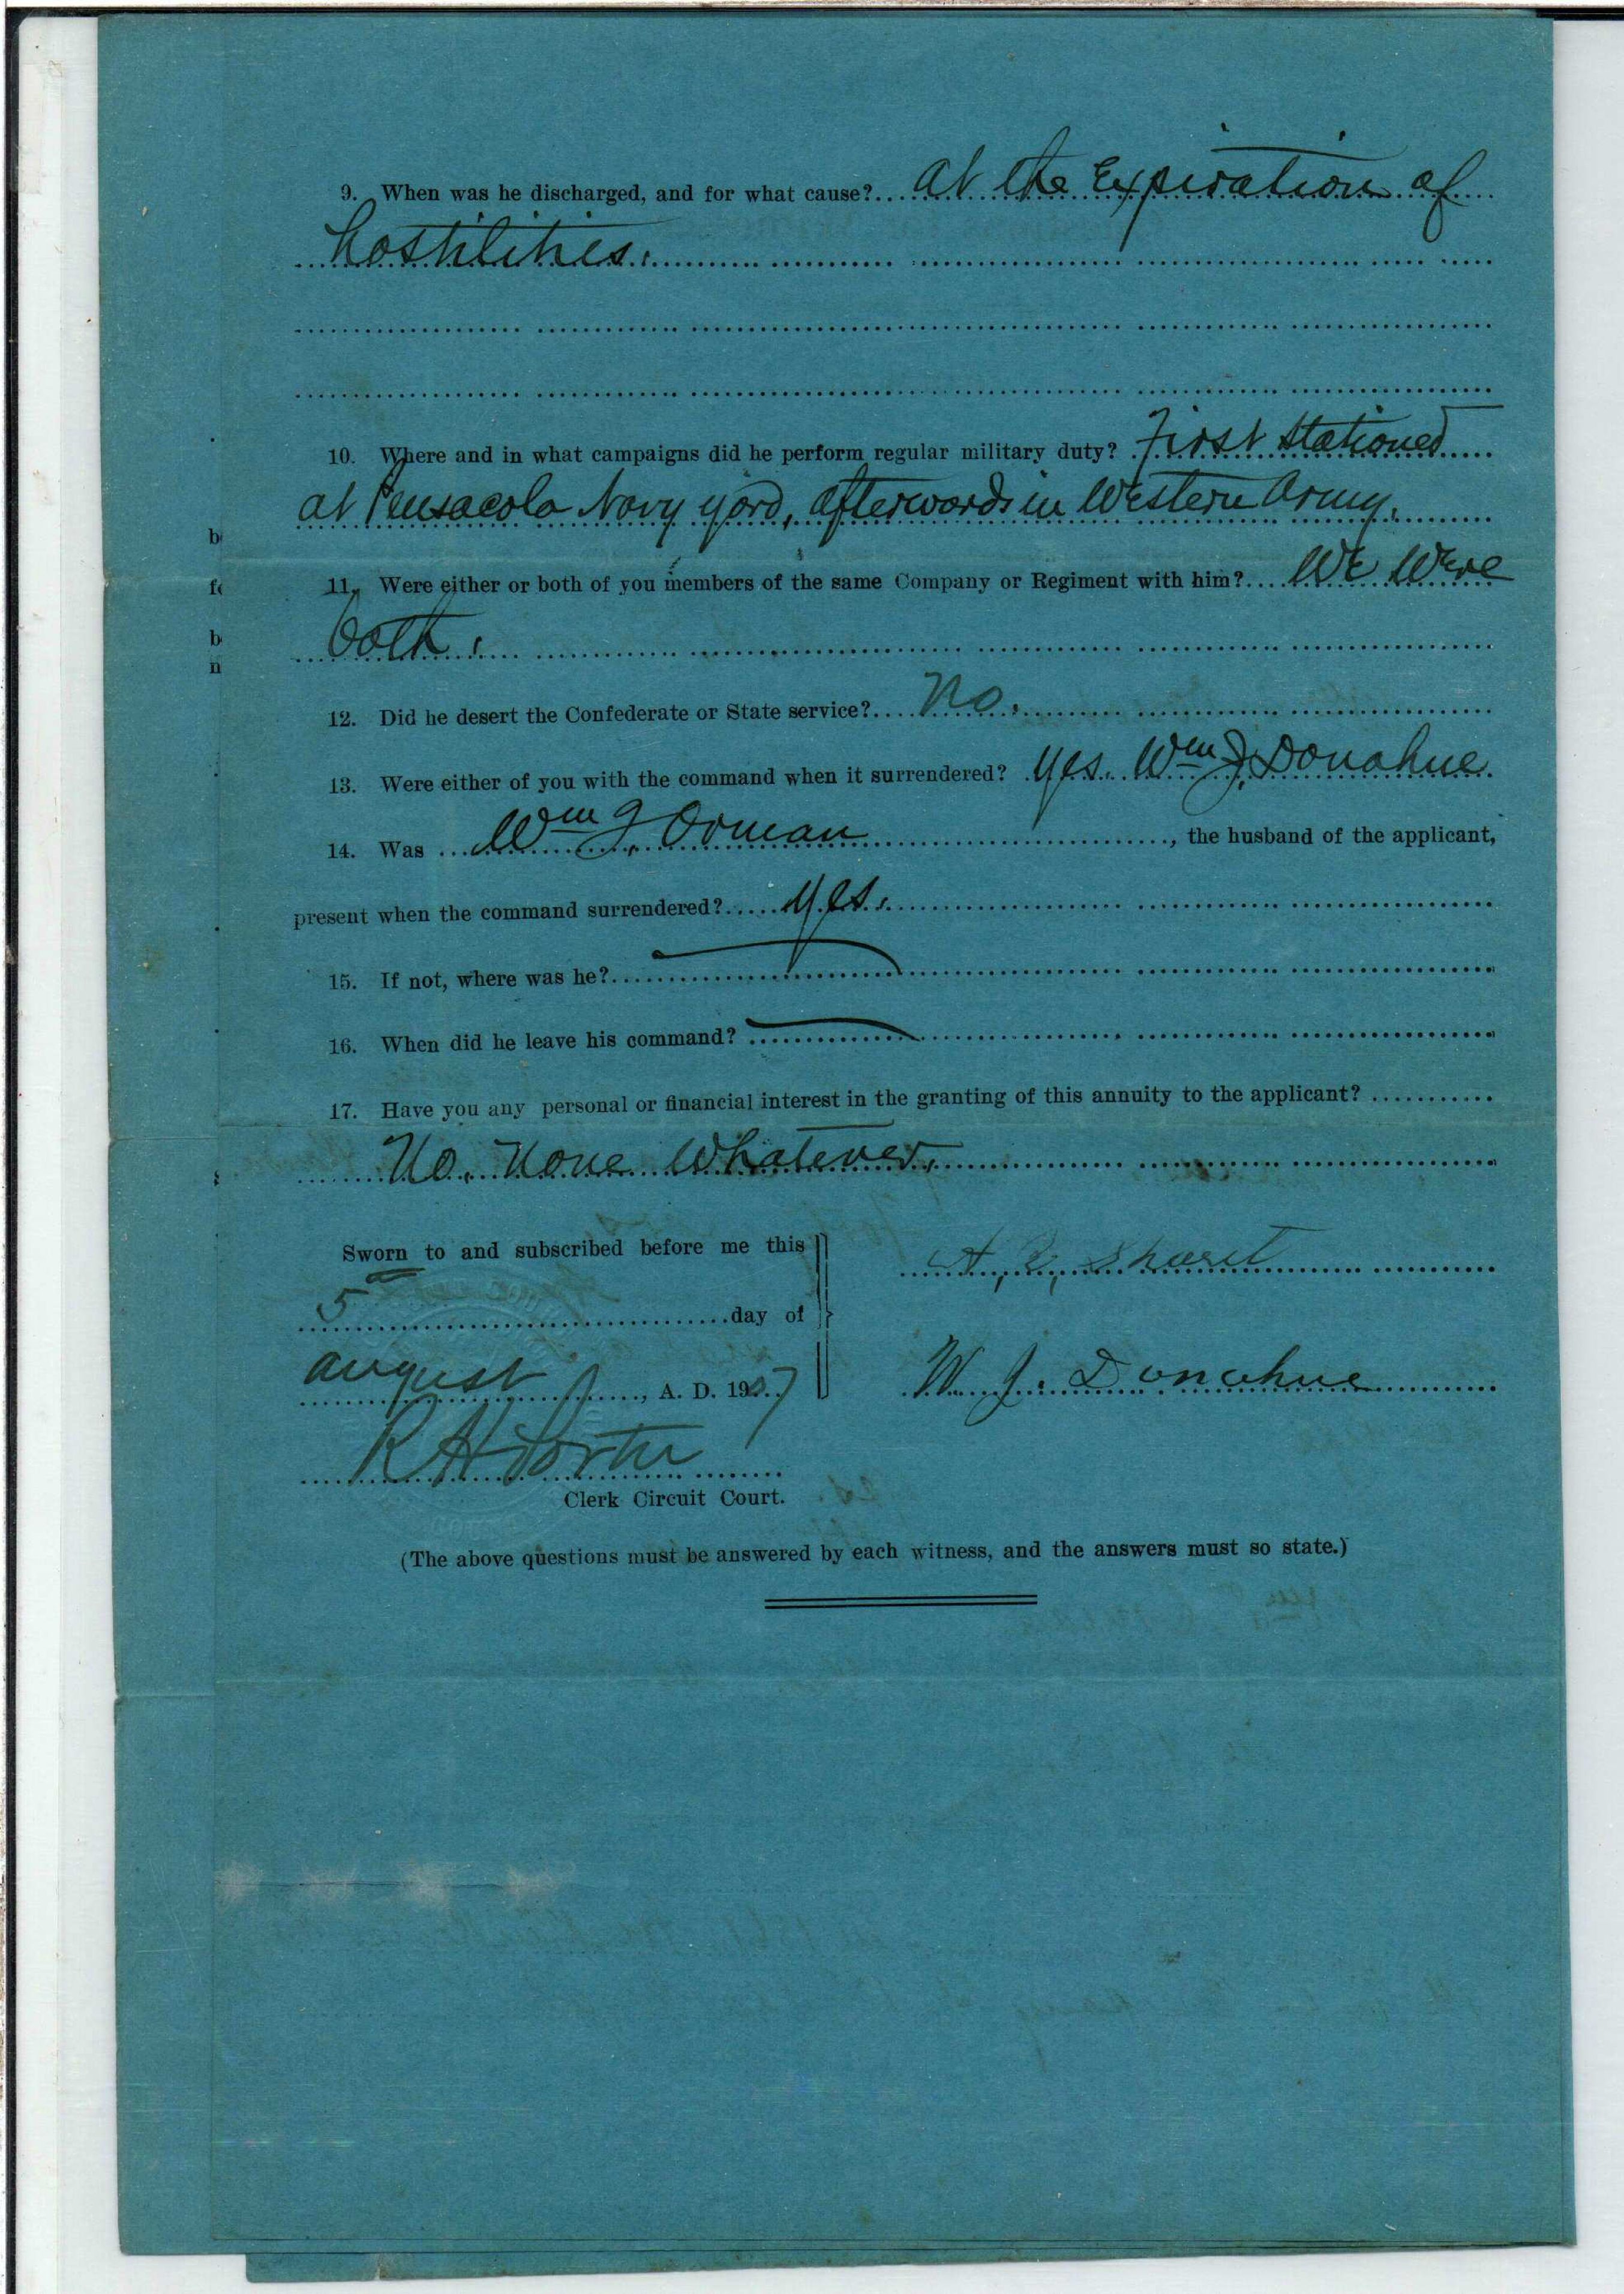 9. When was he discharged, and for what cause? at the Expiration of
hostilities.
10. Where and in what campaigns did he perform regular military duty? First Stationed
at Pensacola Navy yard, afterwords in Western Army.
11. Were either or both of you members of the same Company or Regiment with him? We Were
both.
12. Did he desert the Confederate or State service? No.
13. Were either of you with the command when it surrendered? Yes. Wm J. Donohue
14. Was Wm J. Orman, the husband of the applicant,
present when the command surrendered? Yes.
15. If not, where was he?
16. When did he leave his command?
17. Have you any personal or financial interest in the granting of this annuity to the applicant?
No. None Whatever.
Sworn to and subscribed before me this
5 day of
august, A. D. 1907
R H Porter
Clerk Circuit Court.
A.
W. J. Donohue
(The above questions must be answered by each witness, and the answers must so state.)